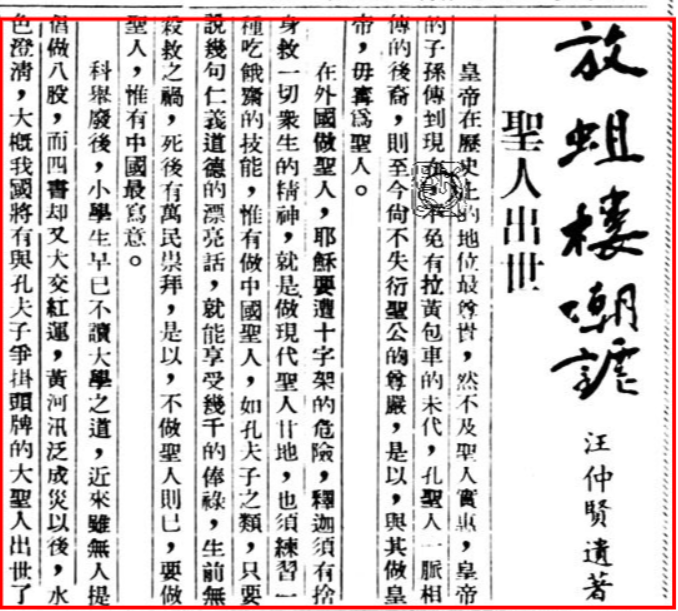 放蛆樓嘲謔
汪仲賢遺著
聖人出世
皇帝在歷史上的地位最尊貴，然不及聖人實惠，皇帝
的子孫傳到現在，不免有拉黃包車的末代，孔聖人一脈相
傳的後裔，則至今尙不失衍聖公的尊嚴，是以，與其做皇
帝，毋寗爲聖人。
在外國做聖人，耶穌要遭十字架的危險，釋迦須有捨
身救一切衆生的精神，就是做現代聖人甘地，也須練習一
種吃餓齋的技能，惟有做中國聖人，如孔夫子之類，只要
說幾句仁義道德的漂亮話，就能享受幾千的俸祿，生前無
殺救之禍，死後有萬民崇拜，是以，不做聖人則已，要做
聖人，惟有中國最寫意。
科舉廢後，小學生早已不讀大學之道，近來雖無人提
倡做八股，而四書却又大交紅運，黃河汛泛成災以後，水
色澄清，大概我國將有與孔夫子爭掛頭牌的大聖人出世了